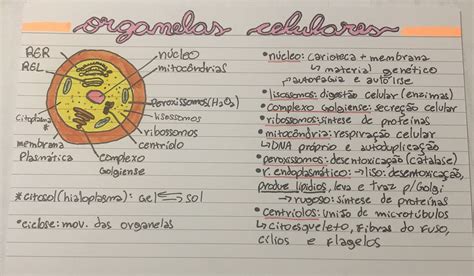 organelas celulares
RER
REL
citoplasma*
membrana
Plasmática
núcleo
mitocôndrias
peroxissomos (H₂O₂)
lisossomos
ribossomos
centríolo
complexo
Golgiense
*citosol (hialoplasma): Gel ⇌ sol
•ciclose: mov. das organelas
•núcleo: carioteca + membrana
↳ material genético
↳ autofagia e autólise
•lisossomos: digestão celular (enzimas)
•complexo Golgiense: secreção celular
•ribossomos: síntese de proteínas
•mitocôndria: respiração celular
↳ DNA próprio e autoduplicação
•peroxissomos: desentoxicação (catalase)
•r. endoplasmático: → liso: desentoxicação,
produz lipídios, leva e traz p/ Golgi
→ rugoso: síntese de proteínas
•centríolos: união de microtúbulos
↳ citoesqueleto, fibras do fuso,
cílios e flagelos